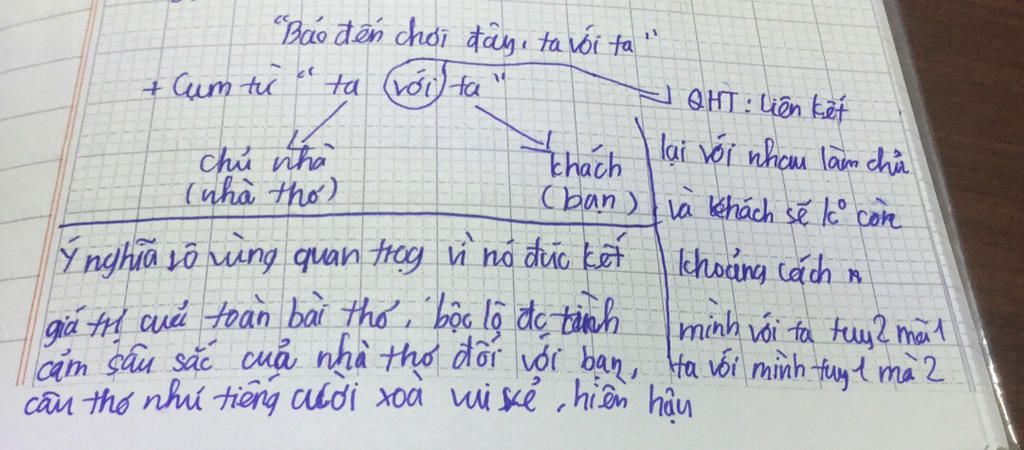 "Báo đến chơi đây, ta với ta"
+ Cụm từ " ta với ta"
QHT: Liên kết
chủ nhà
(nhà thơ)
khách
(bạn)
lại với nhau làm chủ
và khách sẽ kº còn
khoảng cách
mình với ta tuy 2 mà 1
ta với mình tuy 1 mà 2
Ý nghĩa vô vùng quan trọg vì nó đúc kết
giá trị của toàn bài thơ, bộc lộ đc tình
cảm sâu sắc của nhà thơ đối với bạn,
câu thơ như tiếng cười xoà vui vẻ, hiền hậu